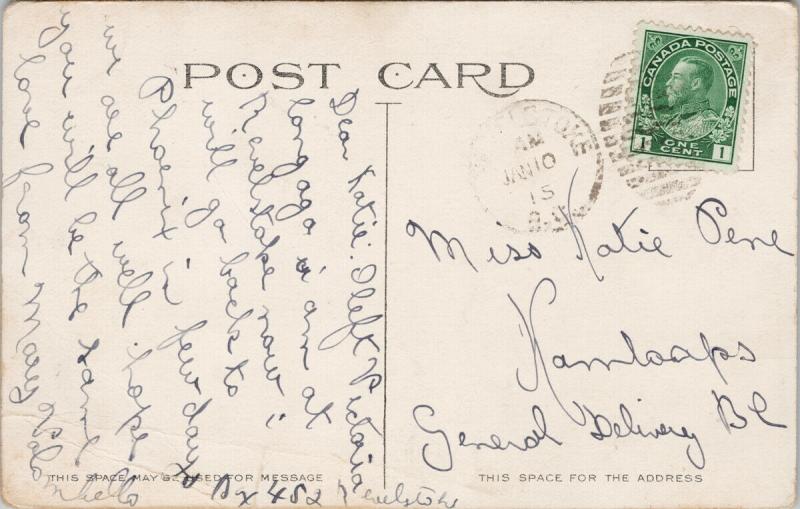 POST CARD
CANADA POSTAGE
1 ONE CENT 1
AM
JAN 10
15
Dear Katie. I left Victoria
long ago i am at
Revelstoke now i
will go back to
Phoenix in few days
we are all well hope
you will be the same
love from Mary
Bx 482 Revelstoke
Miss Katie Pene
Kamloops
General Delivery BC
THIS SPACE MAY BE USED FOR MESSAGE
THIS SPACE FOR THE ADDRESS